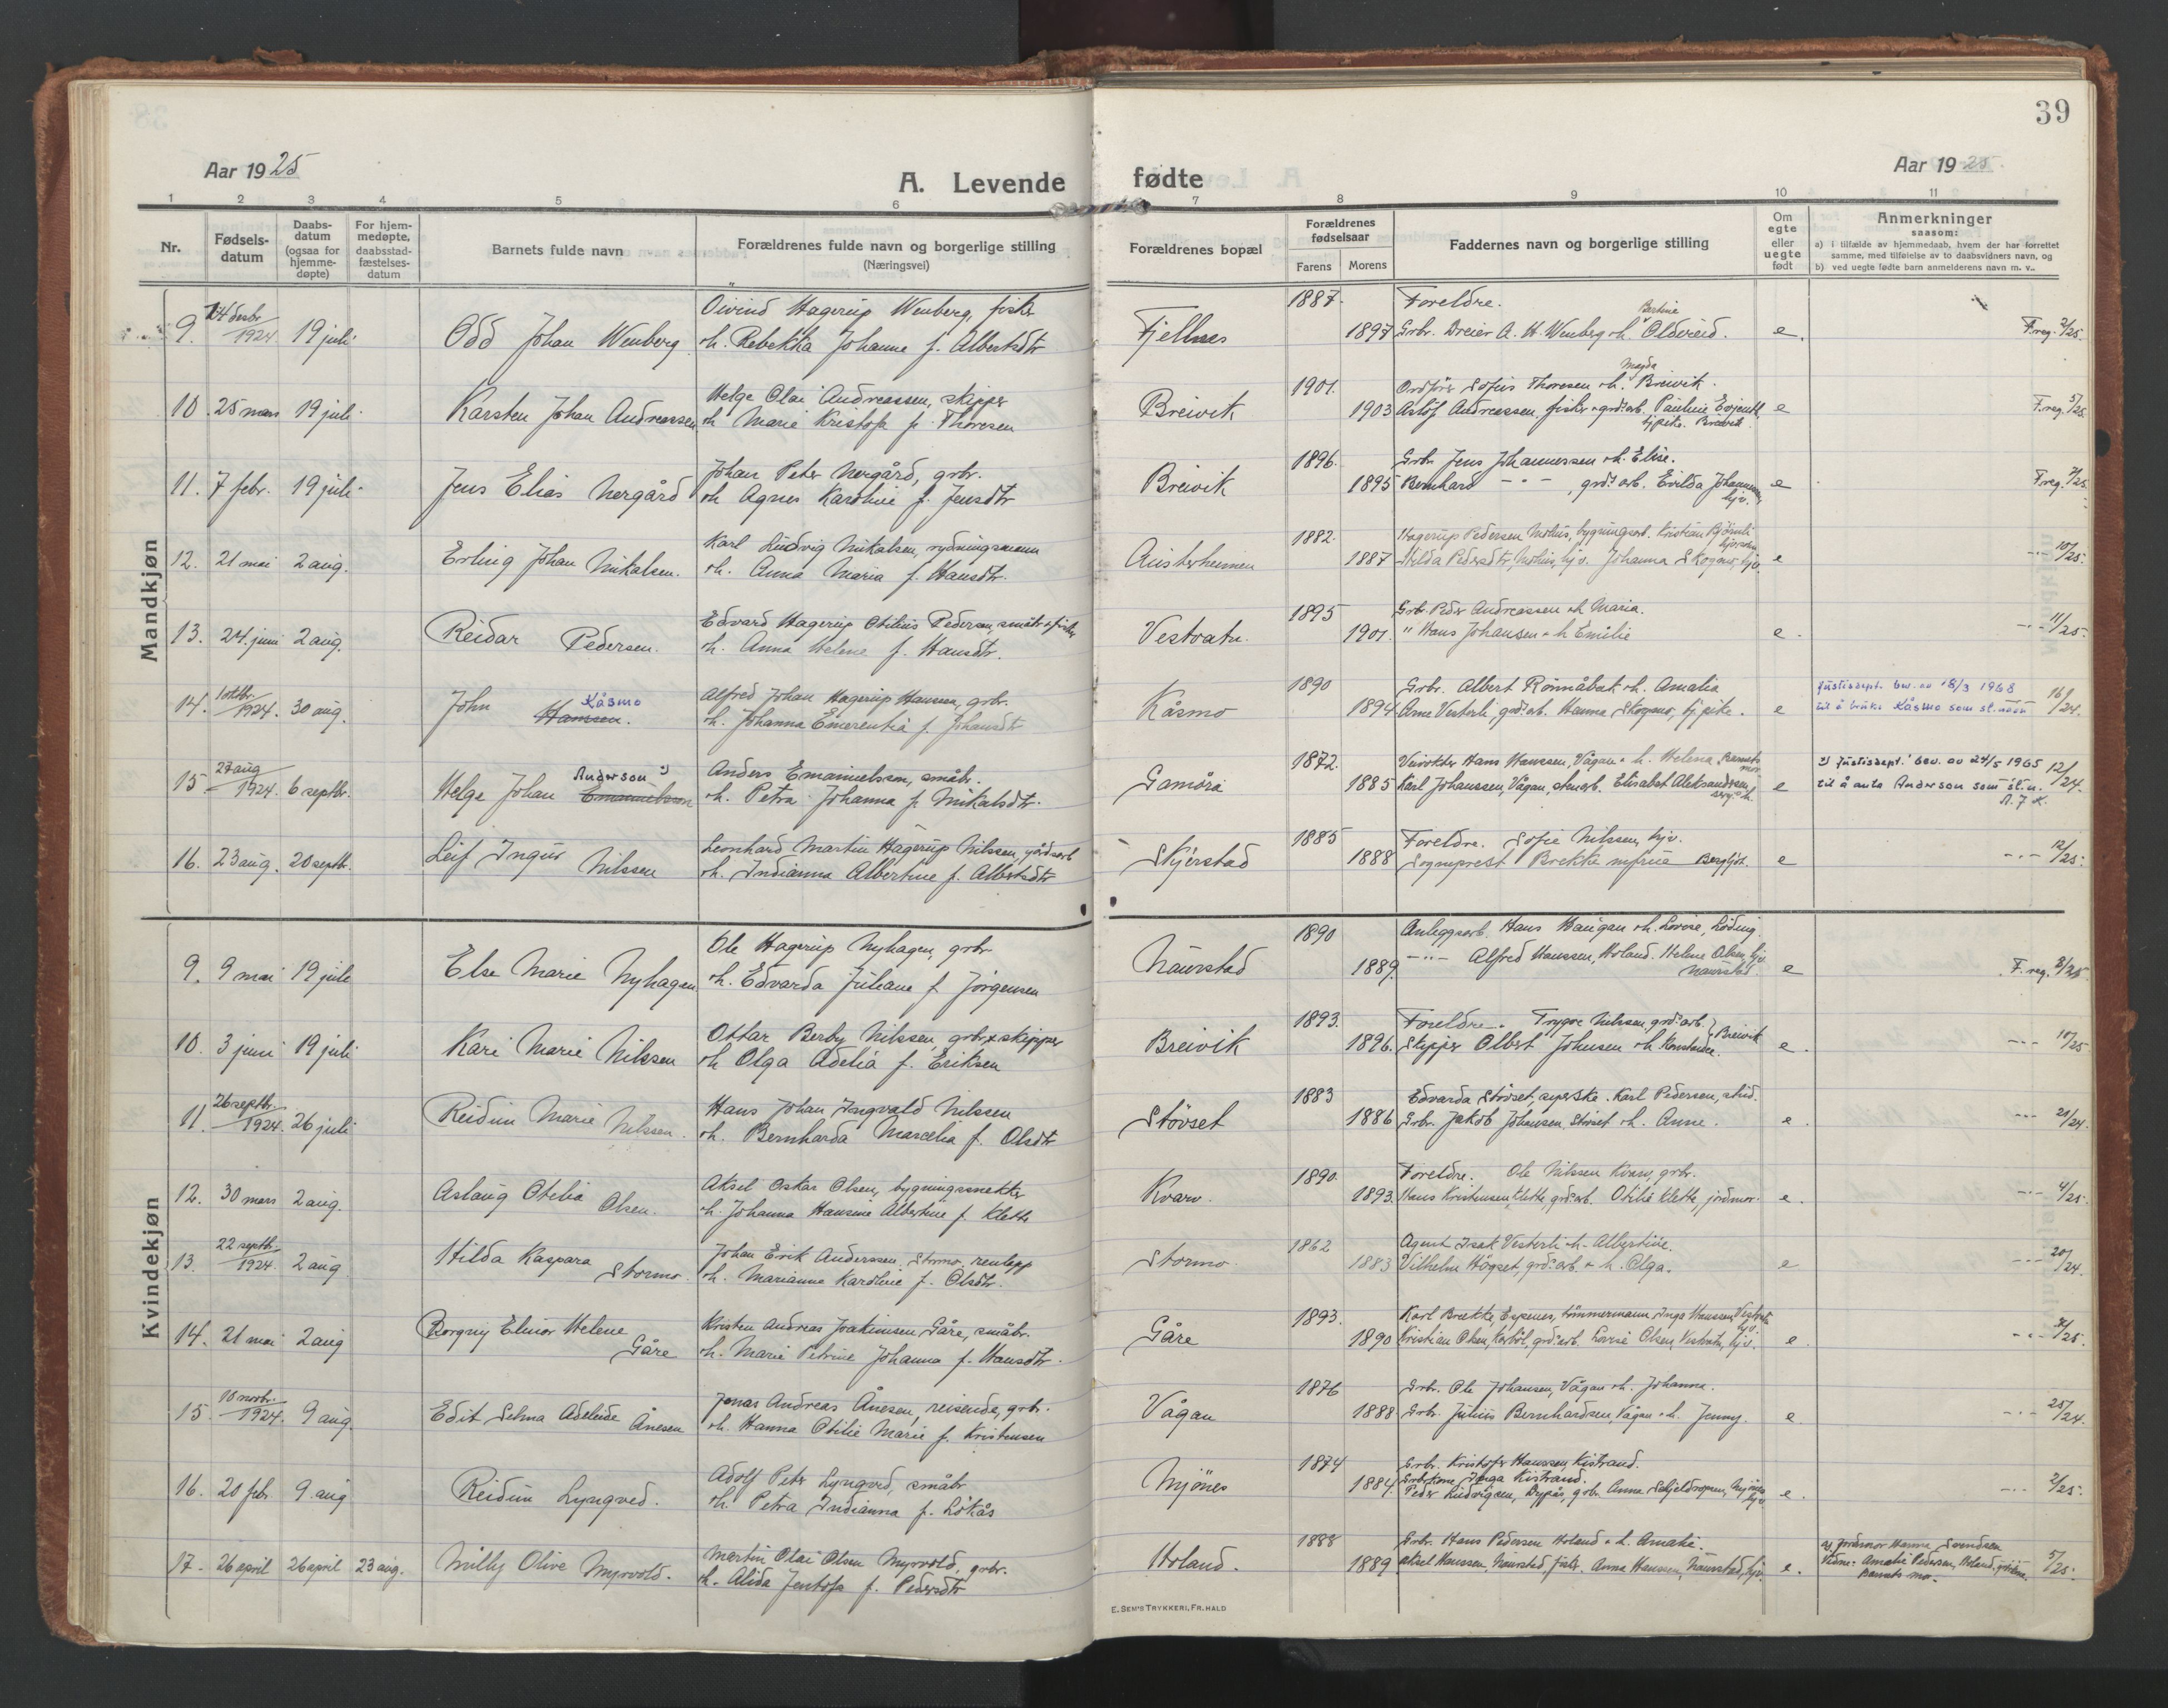 39
Aar 1925
A. Levende fødte
Aar 1925
1 2 3 4 5 6 7 8 9 10 11
Nr.
Fødsels-
datum
Daabs-
datum
(ogsaa for
hjemme-
døpte)
For hjem-
medøpte,
daabsstad-
fæstelses-
datum
Barnets fulde navn
Forældrenes fulde navn og borgerlige stilling
(Næringsvei)
Forældrenes bopæl
Forældrenes
fødselsaar
Farens Morens
Faddernes navn og borgerlige stilling
Om
egte
eller
uegte
født
Anmerkninger
saasom:
a) i tilfælde av hjemmedaab, hvem der har forrettet
samme, med tilføielse av to daabsvidners navn, og
b) ved uegte fødte barn anmelderens navn m. v..
Mandkjøn
9. 24 desbr. 1924 19 juli Odd Johan Wenberg
Öivind Hagerup Wenberg, fisker
o h. Rebekka Johanne f. Albertsdtr
Fjellnes 1887. 1897
Foreldre.
Grbr. Dreier A. H. Wenberg o h. Bertine Oldereid. e. F.reg. 2/25.
10. 25 mars 19 juli Karsten Johan Andreassen
Helge Olai Andreassen, skipper
o h Marie Kristofa f. Thoresen
Breivik 1901. 1903
Ordfører Sofus Thoresen o h. Magda Breivik.
Astöf Andreassen, fisker o grdsarb. Pauline Evjenth
tj.pike. Breivik e F.reg. 5/25.
11. 7 febr. 19 juli Jens Elias Nergård
Johan Peter Nergård, grbr.
o h Agnes Karoline f. Jensdtr
Breivik 1896. 1895
Grbr. Jens Johannessen o h. Elise.
Bernhard - " - grds arb. Evilda Johannessen, hjv. e F.reg. 7/25.
12. 21 mai 2 aug. Erling Johan Mikalsen.
Karl Ludvig Mikalsen, rydningsmann
o h. Anna Maria f. Hansdtr.
Austerheimen 1882. 1887
Hagerup Pedersen Mohus, bygningsarb. Kristian
Hilda Pedersdtr, Mohus, hjv. Johanna Skogmo, hjv. e - " - 10/25.
13. 24. juni 2 aug. Reidar Pedersen.
Edvard Hagerup Otelius Pedersen, småbr. o fisker
o h. Anna Helene f. Hansdtr.
Vestvatn. 1895 1901.
Grb. Peder Andreassen o h Maria.
" Hans Johansen o h Emilie e. - " - 11/25.
14. 1 oktbr. 1924. 30 aug. John Hansen. Kåsmo
Alfred Johan Hagerup Hansen, grbr.
o h. Johanna Emerentia f. Johansdtr
Kåsmo 1890 1894
Grbr. Albert Rönnåbak o h. Amalia
Arne Vesterli, grds arb. Hanna Skogmo, tj.pike. e
Justisdept. bev. av 18/3 1968
til å bruke Kåsmo som st.navn 16/24.
15. 27 aug 1924. 6 septbr. Helge Johan Emanuelssen Anderson 2)
Anders Emanuelssen, småbr.
o h. Petra Johanna f. Mikalsdtr.
Gamöra 1872. 1885
Veivokter Hans Hanssen, Vågan o h. Helena, Barnets mor
Karl Johanssen, Vågan, stenarb. Elisabet Aleksandersen, e
2) Justisdept.s bev. av 24/5 1965
til å anta Anderson som st.n. 12/24.
16. 23 aug. 20 septbr. Leif Ingur Nilssen
Leonhard Martin Hagerup Nilssen, gårdsarb
o h. Indianna Albertine f. Albertsdtr
Skjerstad 1885 1888
Foreldre. Sofie Nilssen, hjv.
Sogneprest Brekke m/frue Bergljot. e - " - 12/25.
Kvindekjøn
9. 9 mai 19 juli Else Marie Nyhagen
Ole Hagerup Nyhagen, grbr.
o h. Edvarda Juliane f. Jörgensen
Naurstad 1890 1889.
Anleggsarb. Hans Haugan o h. Lovise, Löding.
- " - Alfred Hanssen, Holand. Helene Olsen, hjv.
Naurstad. e F.reg. 8/25.
10. 3 juni 19 juli Kari Marie Nilssen
Ottar Berby Nilssen, grbr, o skipper
o h Olga Adelia f. Eriksen
Breivik 1893. 1896.
Foreldre. Trygve Nilssen, grds arb.
Skipper Olbert Johnsen o h Konstanse. Breivik e. - " - 10/25
11. 26 septbr. 1924. 26 juli Reidun Marie Nilssen.
Hans Johan Ingvald Nilssen
o h. Bernharda Marcelia f. Olsdtr
Stövset 1883 1886
Edvarda Stövset, syerske. Karl Pedersen, stud.
Grbr. Jakob Johansen, Stövset o h. Anne. e. - " - 21/24.
12. 30 mars 2 aug. Aslaug Otelia Olsen.
Aksel Oskar Olsen, bygningssnekker
o h. Johanna Hansine Albertine f. Klette
Kvarv. 1890. 1893.
Foreldre. Ole Nilssen Kvarv, grbr.
Hans Kristensen Klette, grds arb. Otilie Klette, jordmor. e. - " - 4/25.
13. 22 septbr. 1924. 2 aug Hilda Kaspara Stormo.
Johan Erik Anderssen Stormo, renlapp
o h. Marianna Karoline f. Olsdtr.
Stormo. 1862 1883
Agent Isak Vesterli o h. Albertine.
Vilhelm Högset, grds arb. o h. Olga. e - " - 20/24.
14. 21 mai 2 aug Borgny Elinor Helene Gåre
Kristen Andreas Joakimsen Gåre, småbr.
o h. Marie Petrine Johanna f. Hansdtr.
Gåre 1893. 1890
Karl Brekke, Espenes, tömmermann, Inga Hanssen, Vestvatn hjv.
Kristian Olsen, grds arb. Lovise Olsen, Vestvatn, hjv. e. - " -
15. 10 novbr. 1924. 9 aug. Edit Selma Adeleide Ånesen
Jonas Andreas Ånesen, reisende, grbr.
o h. Hanna Otilie Marie f. Kristensen
Vågan 1876 1888
Grbr. Ole Johansen, Vågan o h. Johanna.
Grbr. Julius Bernhardsen Vågan o h. Jenny. e. - " - 25/24.
16. 20 febr. 9 aug Reidun Lyngved.
Adolf Peter Lyngved, småbr
o h. Petra Indianna f. Lökås
Mjönes 1874 1884
Grbr. Kristofer Hanssen, Kistrand.
Grbr.kone Inga Kistrand.
Peder Ludvigsen, Dypås, grbr. Anna Skjeldropen, Mjönes hjv. e. - " - 2/25.
17. 26 april 26 april 23 aug. Milly Olive Myrvold.
Martin Olai Olsen Myrvold, grbr.
o h. Alida Jentofa f. Pedersdtr
Holand. 1888 1889
Grbr. Hans Pedersen Holand o h. Amalie.
Aksel Hanssen, Naurstad, fisker. Anna Hanssen, Naurstad, hjv. e.
a) Jordmor Hanna Svendsen
Vidne: Amalie Pedersen, Holand,
Barnets mor. 5/25.
E. SEM'S TRYKKERI, FR.HALD